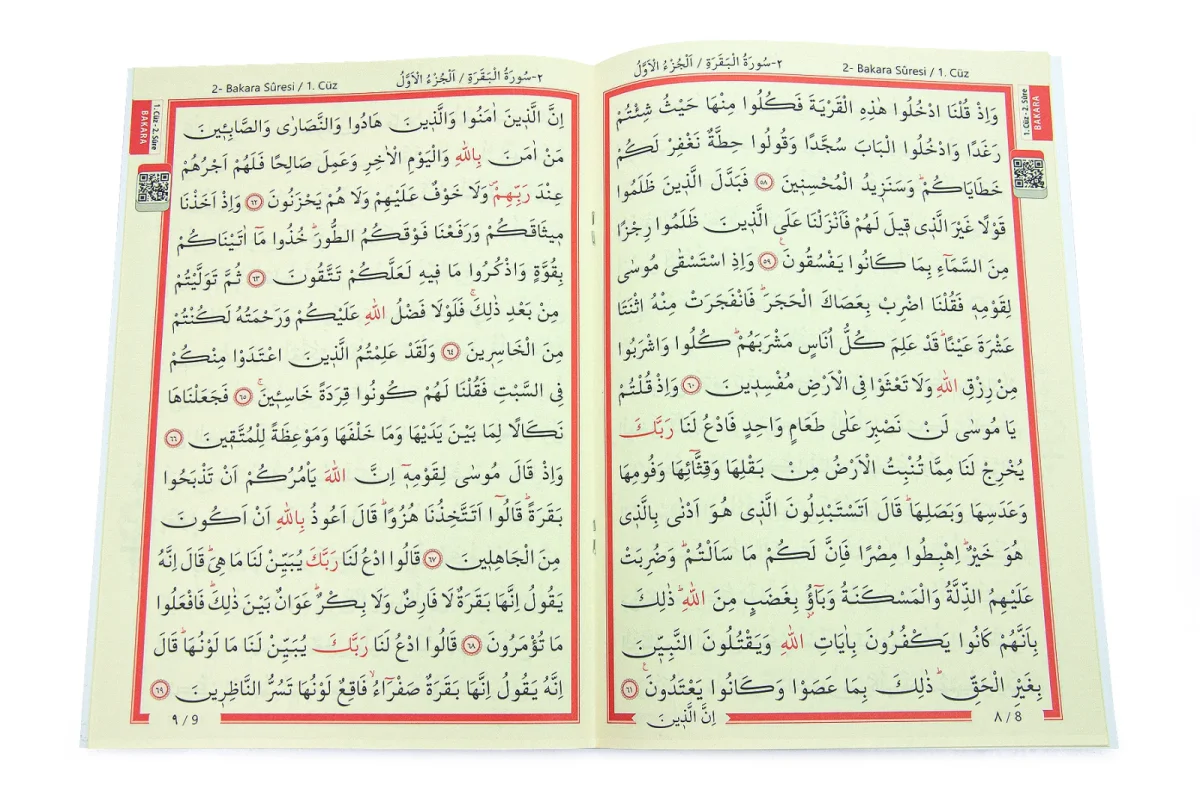 ٢-سُورَةُ الْبَقَرَةِ / اَلْجُزْءُ الْاَوَّلُ 2- Bakara Sûresi / 1. Cüz
1. Cüz - 2. Sûre
BAKARA
وَاِذْ قُلْنَا ادْخُلُوا هٰذِهِ الْقَرْيَةَ فَكُلُوا مِنْهَا حَيْثُ شِئْتُمْ
رَغَدًا وَادْخُلُوا الْبَابَ سُجَّدًا وَقُولُوا حِطَّةٌ نَغْفِرْ لَكُمْ
خَطَايَاكُمْۜ وَسَنَزِيدُ الْمُحْسِنِينَ ٥٨ فَبَدَّلَ الَّذِينَ ظَلَمُوا
قَوْلًا غَيْرَ الَّذِي قِيلَ لَهُمْ فَاَنْزَلْنَا عَلَى الَّذِينَ ظَلَمُوا رِجْزًا
مِنَ السَّمَٓاءِ بِمَا كَانُوا يَفْسُقُونَ۟ ٥٩ وَاِذِ اسْتَسْقٰى مُوسٰى
لِقَوْمِهٖ فَقُلْنَا اضْرِبْ بِعَصَاكَ الْحَجَرَۜ فَانْفَجَرَتْ مِنْهُ اثْنَتَا
عَشْرَةَ عَيْنًاۜ قَدْ عَلِمَ كُلُّ اُنَاسٍ مَشْرَبَهُمْۜ كُلُوا وَاشْرَبُوا
مِنْ رِزْقِ اللّٰهِ وَلَا تَعْثَوْا فِي الْاَرْضِ مُفْسِدِينَ ٦٠ وَاِذْ قُلْتُمْ
يَا مُوسٰى لَنْ نَصْبِرَ عَلٰى طَعَامٍ وَاحِدٍ فَادْعُ لَنَا رَبَّكَ
يُخْرِجْ لَنَا مِمَّا تُنْبِتُ الْاَرْضُ مِنْ بَقْلِهَا وَقِثَّٓائِهَا وَفُومِهَا
وَعَدَسِهَا وَبَصَلِهَاۜ قَالَ اَتَسْتَبْدِلُونَ الَّذِي هُوَ اَدْنٰى بِالَّذِي
هُوَ خَيْرٌۜ اِهْبِطُوا مِصْرًا فَاِنَّ لَكُمْ مَا سَاَلْتُمْۜ وَضُرِبَتْ
عَلَيْهِمُ الذِّلَّةُ وَالْمَسْكَنَةُ وَبَٓاؤُ۫ بِغَضَبٍ مِنَ اللّٰهِۜ ذٰلِكَ
بِاَنَّهُمْ كَانُوا يَكْفُرُونَ بِاٰيَاتِ اللّٰهِ وَيَقْتُلُونَ النَّبِيّٖنَ
بِغَيْرِ الْحَقِّۜ ذٰلِكَ بِمَا عَصَوْا وَكَانُوا يَعْتَدُونَ۟ ٦١
اِنَّ الَّذِينَ
٨ / 8
٢-سُورَةُ الْبَقَرَةِ / اَلْجُزْءُ الْاَوَّلُ 2- Bakara Sûresi / 1. Cüz
1. Cüz - 2. Sûre
BAKARA
اِنَّ الَّذِينَ اٰمَنُوا وَالَّذِينَ هَادُوا وَالنَّصَارٰى وَالصَّابِئِينَ
مَنْ اٰمَنَ بِاللّٰهِ وَالْيَوْمِ الْاٰخِرِ وَعَمِلَ صَالِحًا فَلَهُمْ اَجْرُهُمْ
عِنْدَ رَبِّهِمْۖ وَلَا خَوْفٌ عَلَيْهِمْ وَلَا هُمْ يَحْزَنُونَ ٦٢ وَاِذْ اَخَذْنَا
مِيثَاقَكُمْ وَرَفَعْنَا فَوْقَكُمُ الطُّورَۜ خُذُوا مَٓا اٰتَيْنَاكُمْ
بِقُوَّةٍ وَاذْكُرُوا مَا فِيهِ لَعَلَّكُمْ تَتَّقُونَ ٦٣ ثُمَّ تَوَلَّيْتُمْ
مِنْ بَعْدِ ذٰلِكَۚ فَلَوْلَا فَضْلُ اللّٰهِ عَلَيْكُمْ وَرَحْمَتُهُ لَكُنْتُمْ
مِنَ الْخَاسِرِينَ ٦٤ وَلَقَدْ عَلِمْتُمُ الَّذِينَ اعْتَدَوْا مِنْكُمْ
فِي السَّبْتِ فَقُلْنَا لَهُمْ كُونُوا قِرَدَةً خَاسِئِينَۚ ٦٥ فَجَعَلْنَاهَا
نَكَالًا لِمَا بَيْنَ يَدَيْهَا وَمَا خَلْفَهَا وَمَوْعِظَةً لِلْمُتَّقِينَ ٦٦
وَاِذْ قَالَ مُوسٰى لِقَوْمِهٖٓ اِنَّ اللّٰهَ يَأْمُرُكُمْ اَنْ تَذْبَحُوا
بَقَرَةًۜ قَالُٓوا اَتَتَّخِذُنَا هُزُوًاۜ قَالَ اَعُوذُ بِاللّٰهِ اَنْ اَكُونَ
مِنَ الْجَاهِلِينَ ٦٧ قَالُوا ادْعُ لَنَا رَبَّكَ يُبَيِّنْ لَنَا مَا هِيَۜ قَالَ اِنَّهُ
يَقُولُ اِنَّهَا بَقَرَةٌ لَا فَارِضٌ وَلَا بِكْرٌۜ عَوَانٌ بَيْنَ ذٰلِكَۜ فَافْعَلُوا
مَا تُؤْمَرُونَ ٦٨ قَالُوا ادْعُ لَنَا رَبَّكَ يُبَيِّنْ لَنَا مَا لَوْنُهَاۜ قَالَ
اِنَّهُ يَقُولُ اِنَّهَا بَقَرَةٌ صَفْرَٓاءُۙ فَاقِعٌ لَوْنُهَا تَسُرُّ النَّاظِرِينَ ٦٩
٩ / 9